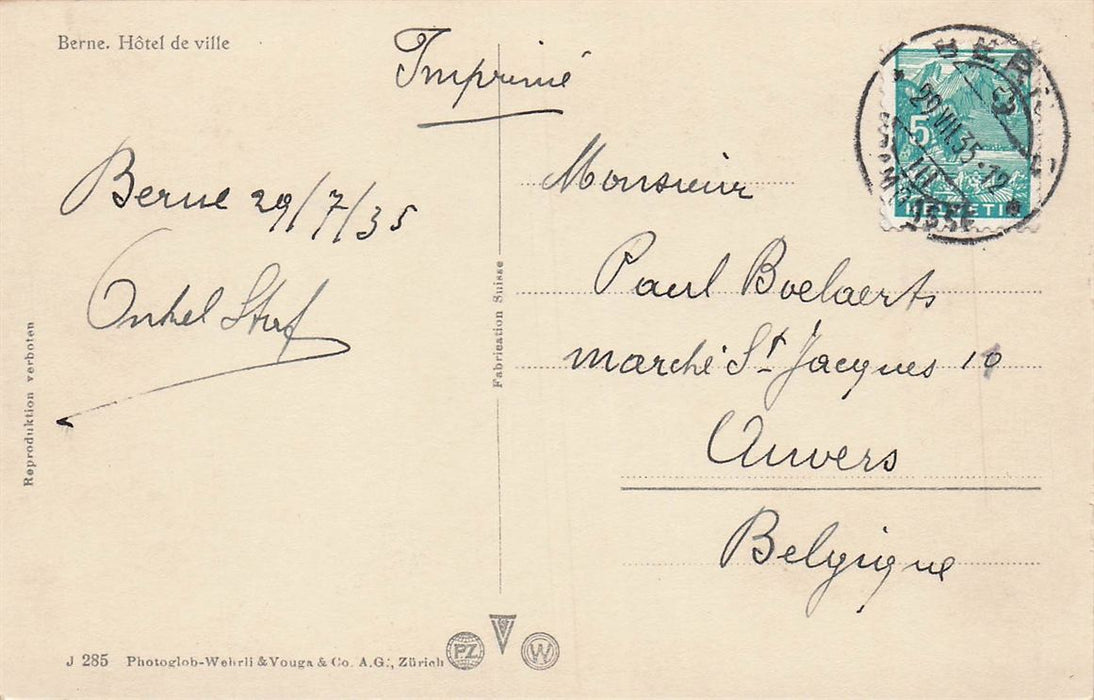 Berne. Hôtel de ville
Imprimé
Berne 29/7/35
Onkel Stef
Reproduktion verboten
Fabrication Suisse
5
HELVETIA
BERN
29.VII.35.-12
Monsieur
Paul Boelaerts
marché St Jacques 10
Anvers
Belgique
J 285 Photoglob-Wehrli & Vouga & Co. A.G., Zürich
PZ
V
W